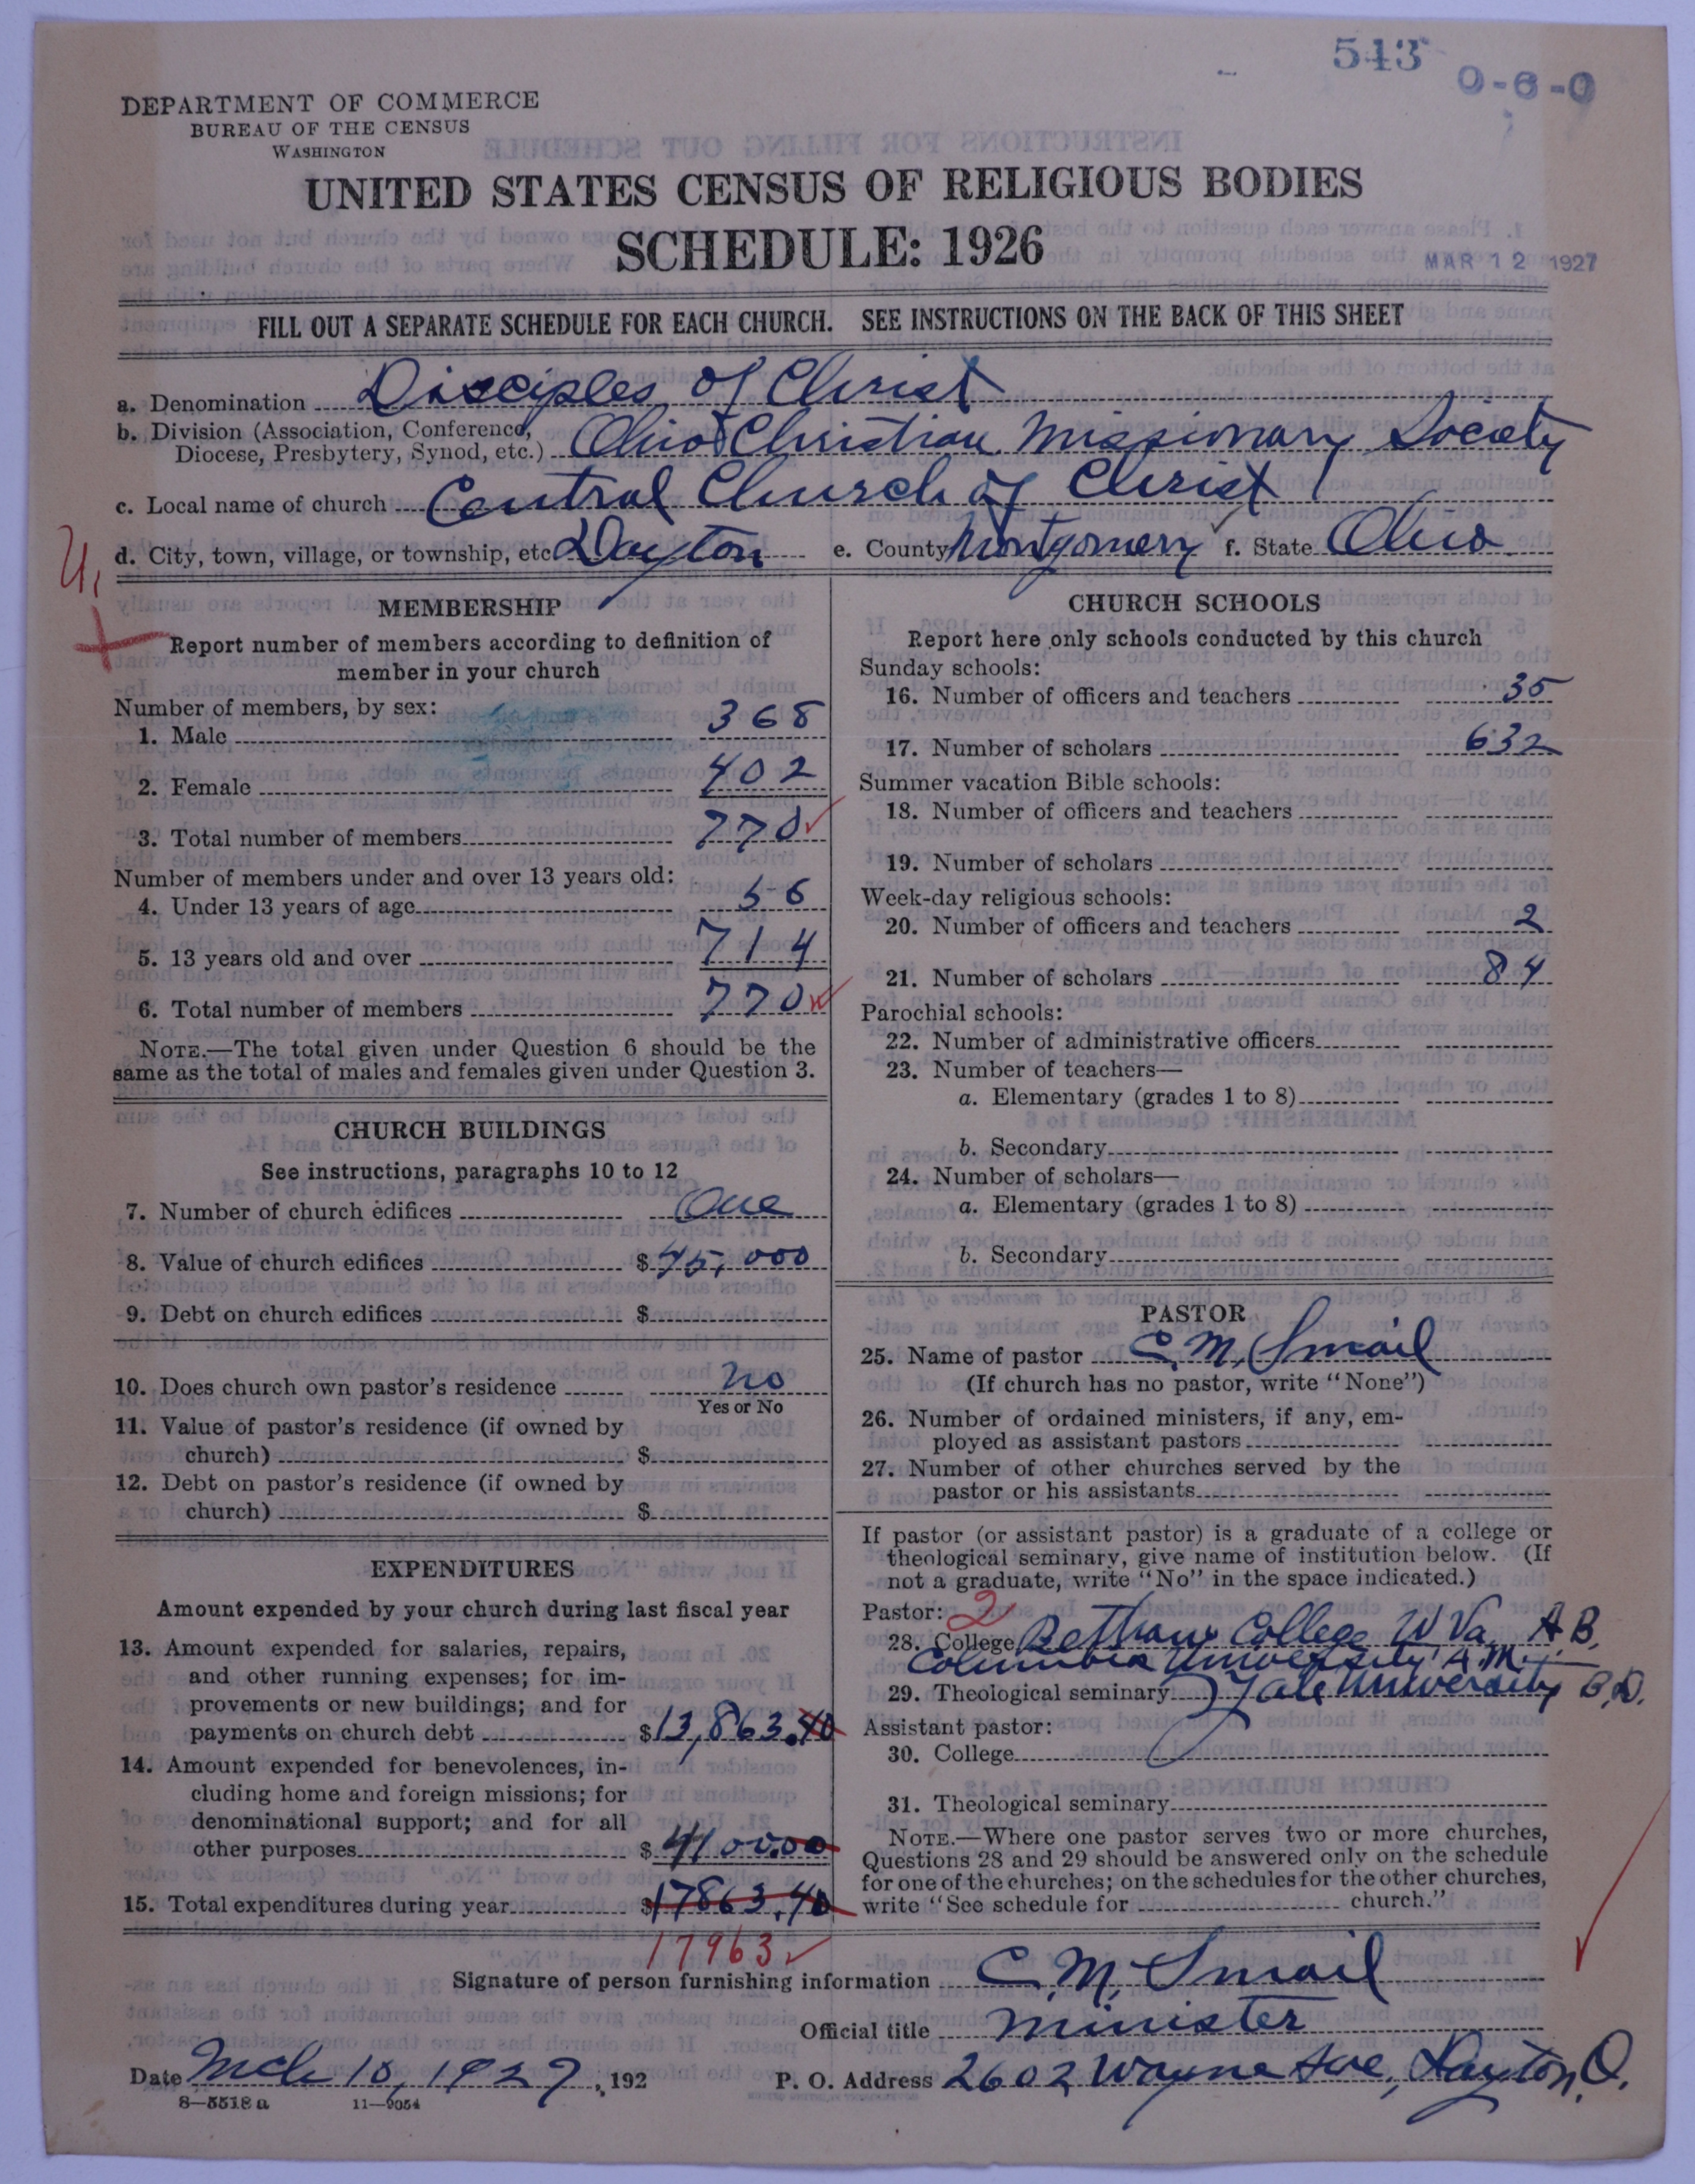 543
0-6-0
DEPARTMENT OF COMMERCE
BUREAU OF THE CENSUS
WASHINGTON
UNITED STATES CENSUS OF RELIGIOUS BODIES
SCHEDULE: 1926
MAR 12 1927
FILL OUT A SEPARATE SCHEDULE FOR EACH CHURCH. SEE INSTRUCTIONS ON THE BACK OF THIS SHEET
a. Denomination Disciples of Christ
b. Division (Association, Conference,
Diocese, Presbytery, Synod, etc.) Ohio Christian Missionary Society
c. Local name of church Central Church of Christ
d. City, town, village, or township, etc Dayton e. County Montgomery f. State Ohio
MEMBERSHIP
Report number of members according to definition of
member in your church
Number of members, by sex:
1. Male 368
2. Female 402
3. Total number of members 770
Number of members under and over 13 years old:
4. Under 13 years of age 56
5. 13 years old and over 714
6. Total number of members 770
NOTE.—The total given under Question 6 should be the
same as the total of males and females given under Question 3.
CHURCH BUILDINGS
See instructions, paragraphs 10 to 12
7. Number of church edifices One
8. Value of church edifices $45,000
9. Debt on church edifices $
10. Does church own pastor's residence No
Yes or No
11. Value of pastor's residence (if owned by
church) $
12. Debt on pastor's residence (if owned by
church) $
EXPENDITURES
Amount expended by your church during last fiscal year
13. Amount expended for salaries, repairs,
and other running expenses; for im-
provements or new buildings; and for
payments on church debt $13,863.40
14. Amount expended for benevolences, in-
cluding home and foreign missions; for
denominational support; and for all
other purposes $4100.00
15. Total expenditures during year $17863.40
17963
CHURCH SCHOOLS
Report here only schools conducted by this church
Sunday schools:
16. Number of officers and teachers 35
17. Number of scholars 632
Summer vacation Bible schools:
18. Number of officers and teachers
19. Number of scholars
Week-day religious schools:
20. Number of officers and teachers 2
21. Number of scholars 84
Parochial schools:
22. Number of administrative officers
23. Number of teachers—
a. Elementary (grades 1 to 8)
b. Secondary
24. Number of scholars—
a. Elementary (grades 1 to 8)
b. Secondary
PASTOR
25. Name of pastor C. M. Smail
(If church has no pastor, write "None")
26. Number of ordained ministers, if any, em-
ployed as assistant pastors
27. Number of other churches served by the
pastor or his assistants
If pastor (or assistant pastor) is a graduate of a college or
theological seminary, give name of institution below. (If
not a graduate, write "No" in the space indicated.)
Pastor: 2
28. College Bethany College W Va. A B.
Columbia University A.M.
29. Theological seminary Yale University B.D.
Assistant pastor:
30. College
31. Theological seminary
NOTE.—Where one pastor serves two or more churches,
Questions 28 and 29 should be answered only on the schedule
for one of the churches; on the schedules for the other churches,
write "See schedule for church."
Signature of person furnishing information C. M. Smail
Official title Minister
Date Mch 10, 1927, 192 P. O. Address 2602 Wayne Ave, Dayton, O.
8—5518 a 11—9054